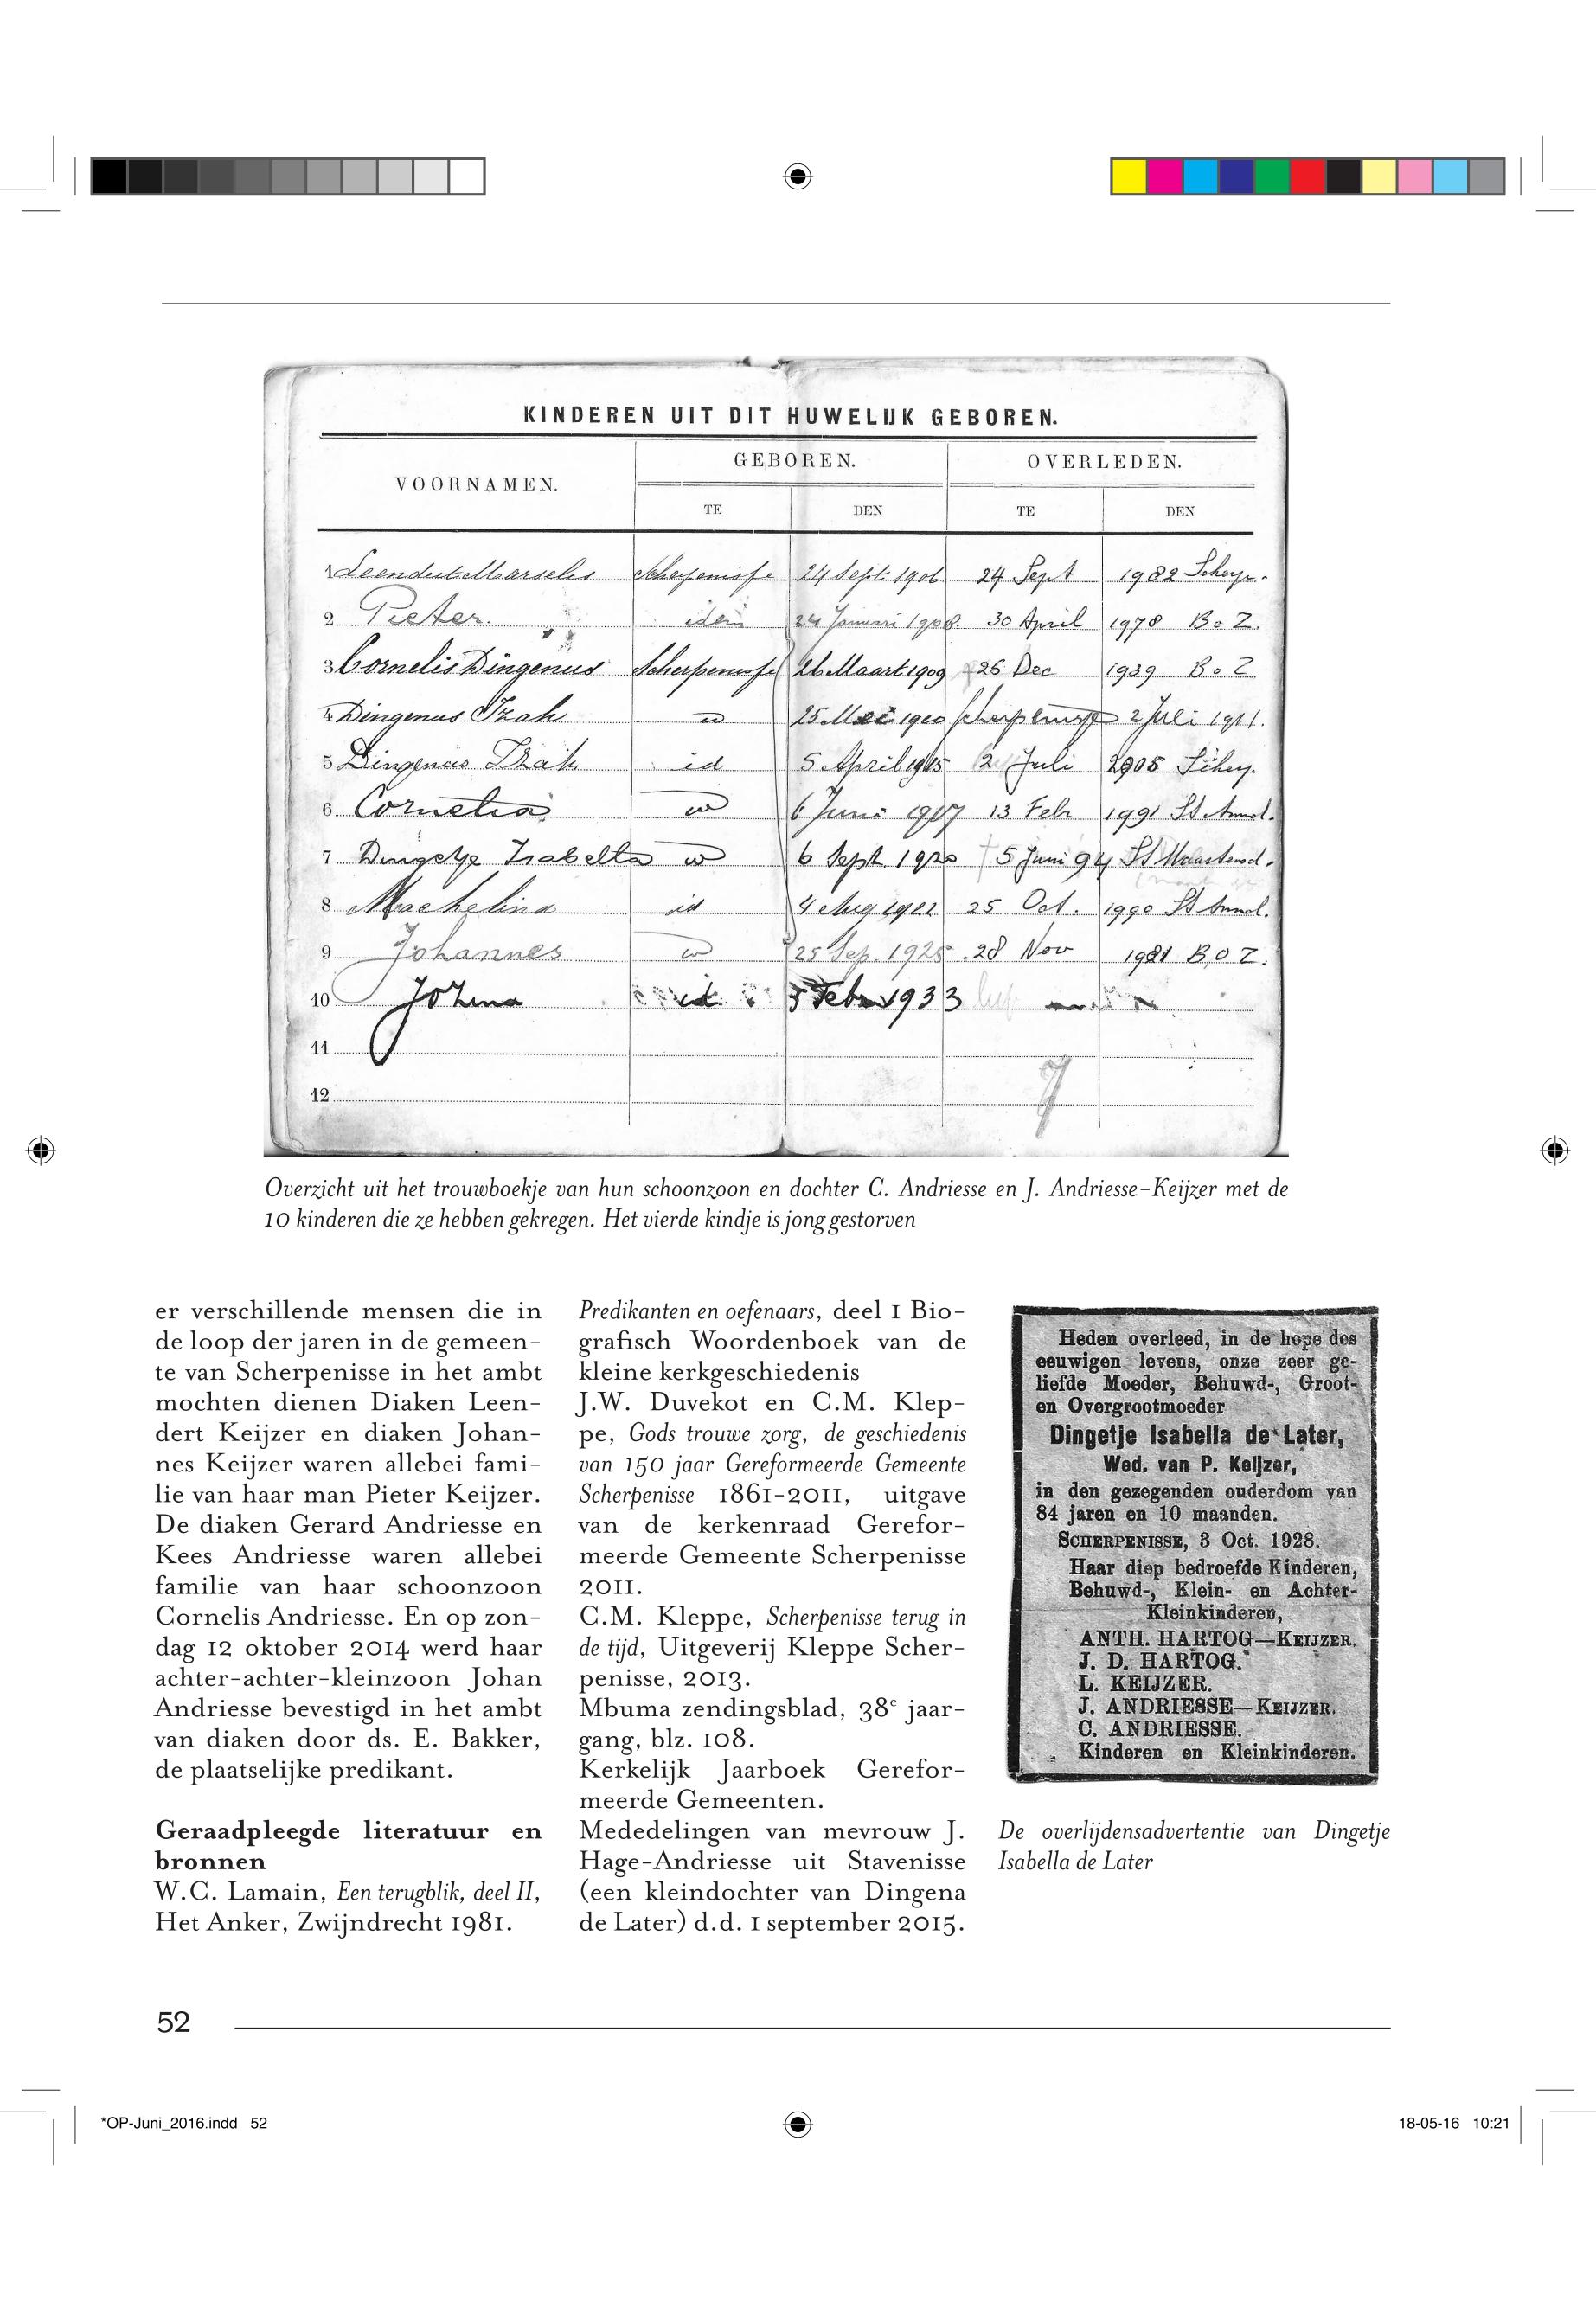 KINDEREN UIT DIT HUWELIJK GEBOREN.
VOORNAMEN. GEBOREN. OVERLEDEN.
TE DEN TE DEN
1 Leendert Marselis Scherpenisse 24 Sept 1906 24 Sept 1982 Scherp.
2 Pieter. idem 24 Januari 1908. 30 April 1978 B o Z.
3 Cornelis Dingenus Scherpenisse 26 Maart 1909 26 Dec 1939 B o Z.
4 Dingenus Izak 25 Mei 1910 Scherpenisse 2 Juli 1911.
5 Dingenus Izak id 5 April 1915 2 Juli 2005 Scherp.
6 Cornelia 6 Juni 1917 13 Febr 1991 St Annal.
7 Dingetje Izabella 6 Sept. 1920 5 Juni 94 St Maartensd.
8 Machelina id 4 Aug 1922 25 Oct. 1990 St Annal.
9 Johannes 25 Sep. 1925 28 Nov 1981 B.O Z.
10 Johana id 3 Febr 1933
11
12
7
Overzicht uit het trouwboekje van hun schoonzoon en dochter C. Andriesse en J. Andriesse-Keijzer met de
10 kinderen die ze hebben gekregen. Het vierde kindje is jong gestorven
er verschillende mensen die in
de loop der jaren in de gemeen-
te van Scherpenisse in het ambt
mochten dienen Diaken Leen-
dert Keijzer en diaken Johan-
nes Keijzer waren allebei fami-
lie van haar man Pieter Keijzer.
De diaken Gerard Andriesse en
Kees Andriesse waren allebei
familie van haar schoonzoon
Cornelis Andriesse. En op zon-
dag 12 oktober 2014 werd haar
achter-achter-kleinzoon Johan
Andriesse bevestigd in het ambt
van diaken door ds. E. Bakker,
de plaatselijke predikant.
Geraadpleegde literatuur en
bronnen
W.C. Lamain, Een terugblik, deel II,
Het Anker, Zwijndrecht 1981.
Predikanten en oefenaars, deel 1 Bio-
grafisch Woordenboek van de
kleine kerkgeschiedenis
J.W. Duvekot en C.M. Klep-
pe, Gods trouwe zorg, de geschiedenis
van 150 jaar Gereformeerde Gemeente
Scherpenisse 1861-2011, uitgave
van de kerkenraad Gerefor-
meerde Gemeente Scherpenisse
2011.
C.M. Kleppe, Scherpenisse terug in
de tijd, Uitgeverij Kleppe Scher-
penisse, 2013.
Mbuma zendingsblad, 38e jaar-
gang, blz. 108.
Kerkelijk Jaarboek Gerefor-
meerde Gemeenten.
Mededelingen van mevrouw J.
Hage-Andriesse uit Stavenisse
(een kleindochter van Dingena
de Later) d.d. 1 september 2015.
Heden overleed, in de hope des
eeuwigen levens, onze zeer ge-
liefde Moeder, Behuwd-, Groot-
en Overgrootmoeder
Dingetje Isabella de Later,
Wed. van P. Keijzer,
in den gezegenden ouderdom van
84 jaren en 10 maanden.
SCHERPENISSE, 3 Oct. 1928.
Haar diep bedroefde Kinderen,
Behuwd-, Klein- en Achter-
Kleinkinderen,
ANTH. HARTOG—KEIJZER.
J. D. HARTOG.
L. KEIJZER.
J. ANDRIESSE—KEIJZER.
C. ANDRIESSE.
Kinderen en Kleinkinderen.
De overlijdensadvertentie van Dingetje
Isabella de Later
52
*OP-Juni_2016.indd 52
18-05-16 10:21